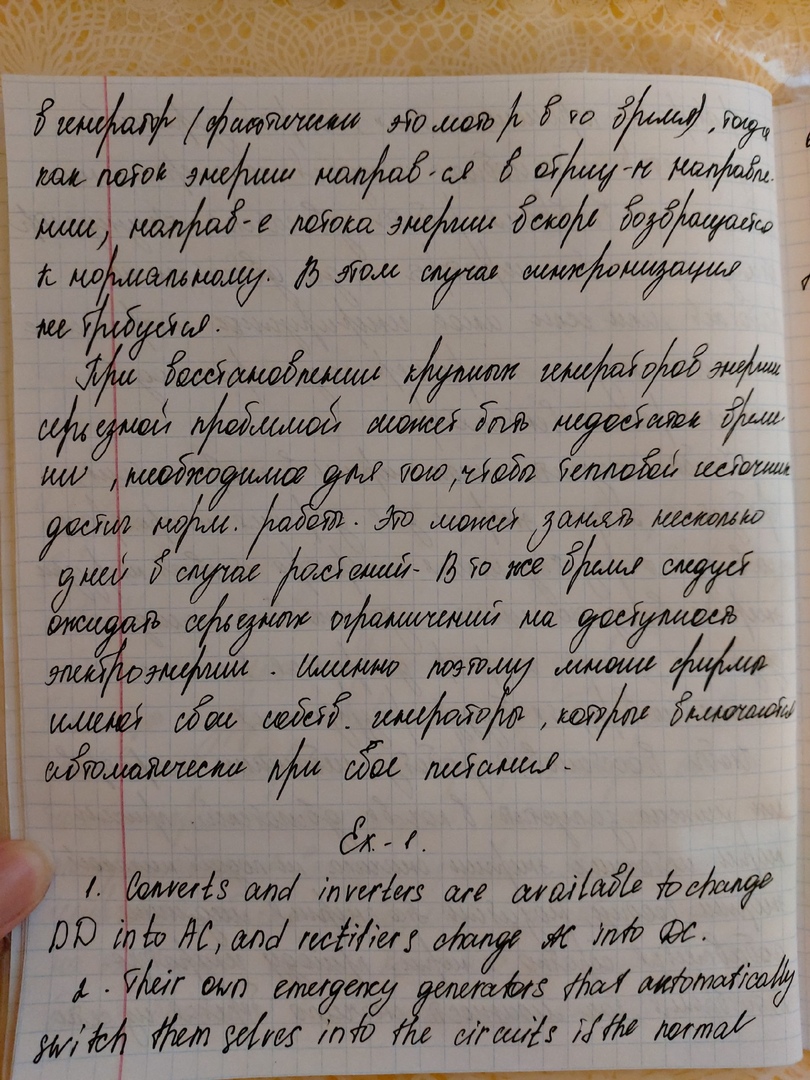 в генератор (фактически это мотор в то время), тогда
как поток энергии направ-ся в отриц-м направле-
нии, направ-е потока энергии вскоре возвращается
к нормальному. В этом случае синхронизация
не требуется.
При восстановлении крупных генераторов энергии
серьезной проблемой может быть недостаток време
ни, необходимое для того, чтобы тепловой источник
достиг норм. работы. Это может занять несколько
дней в случае растений. В то же время следует
ожидать серьезных ограничений на доступность
электроэнергии. Именно поэтому многие фирмы
имеют свои собств. генераторы, которые включаются
автоматически при сбое питания.
Ex-1.
1. Converts and inverters are available to change
DD into AC, and rectifiers change AC into DC.
2. Their own emergency generators that automatically
switch them selves into the circuits if the normal